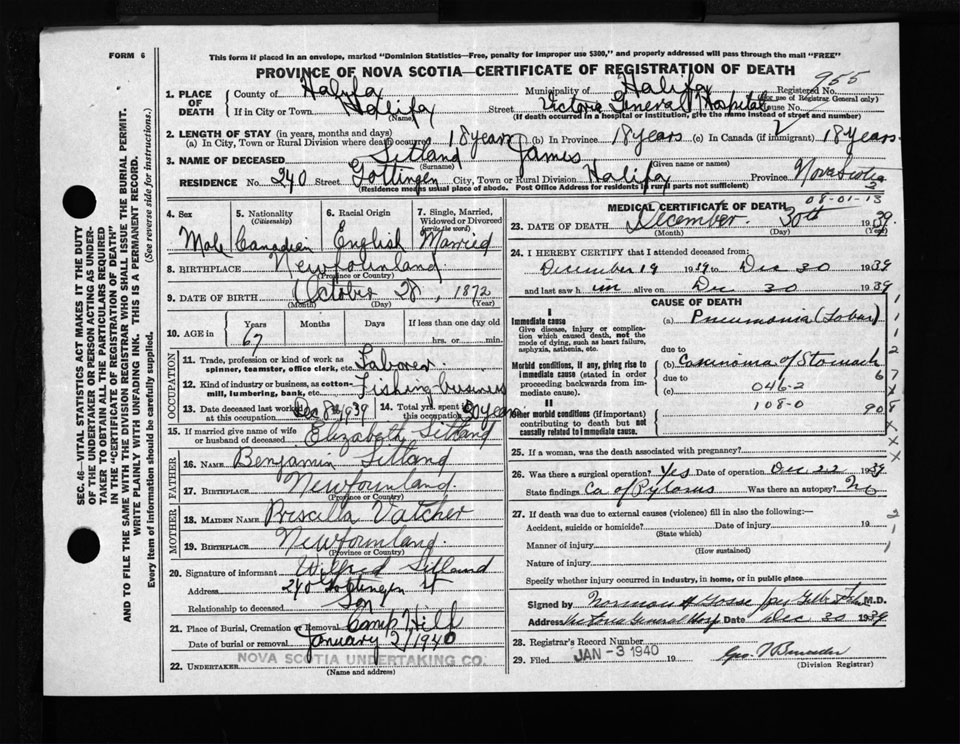 FORM 6
This form if placed in an envelope, marked "Dominion Statistics—Free, penalty for improper use $300," and properly addressed will pass through the mail "FREE"
PROVINCE OF NOVA SCOTIA—CERTIFICATE OF REGISTRATION OF DEATH
955
1. PLACE OF DEATH County of Halifax Municipality of Halifax Registered No.
(For use of Registrar General only)
If in City or Town Halifax Street Victoria General Hospital House No.
(Name) (If death occurred in a hospital or institution, give the name instead of street and number)
2. LENGTH OF STAY (in years, months and days)
(a) In City, Town or Rural Division where death occurred 18 years (b) In Province 18 years (c) In Canada (if immigrant) 18 years
3. NAME OF DECEASED Sitland James
(Surname) (Given name or names)
RESIDENCE No. 240 Street Gottingen City, Town or Rural Division Halifax Province Nova Scotia
(Residence means usual place of abode. Post Office Address for residents in rural parts not sufficient)
4. Sex 5. Nationality (Citizenship) 6. Racial Origin 7. Single, Married, Widowed or Divorced (write the word)
Male Canadian English Married
8. BIRTHPLACE Newfounland
(Province or Country)
9. DATE OF BIRTH October 28, 1872
(Month) (Day) (Year)
10. AGE in Years Months Days If less than one day
67 hrs. or min.
OCCUPATION
11. Trade, profession or kind of work as spinner, teamster, office clerk, etc. Laborer
12. Kind of industry or business, as cotton-mill, lumbering, bank, etc. Fishing business
13. Date deceased last worked at this occupation Dec 8th 1939 14. Total yrs. spent in this occupation 50 years
15. If married give name of wife or husband of deceased Elizabeth Sitland
FATHER
16. NAME Benjamin Sitland
17. BIRTHPLACE Newfounland.
(Province or Country)
MOTHER
18. MAIDEN NAME Priscilla Vatcher
19. BIRTHPLACE Newfounland.
(Province or Country)
20. Signature of informant Wilfred Sitland
Address 240 Gottingen St
Relationship to deceased Son
21. Place of Burial, Cremation or Removal Camp Hill
Date of burial or removal January 2/1940
22. UNDERTAKER NOVA SCOTIA UNDERTAKING CO.
(Name and address)
MEDICAL CERTIFICATE OF DEATH 08-01-13
23. DATE OF DEATH December 30th 1939
(Month) (Day) (Year)
24. I HEREBY CERTIFY that I attended deceased from:
December 19 1939 to Dec 30 1939
and last saw h im alive on Dec 30 1939
CAUSE OF DEATH
I
Immediate cause (a) Pneumonia (Lobar)
Give disease, injury or complication which caused death, not the mode of dying, such as heart failure, asphyxia, asthenia, etc.
due to
Morbid conditions, if any, giving rise to immediate cause (stated in order proceeding backwards from immediate cause). (b) Carcinoma of Stomach
due to 046-2
(c)
II
108-0
Other morbid conditions (if important) contributing to death but not causally related to immediate cause.
25. If a woman, was the death associated with pregnancy?
26. Was there a surgical operation? Yes Date of operation Dec 22 1939
State findings Ca of Pylorus Was there an autopsy? No
27. If death was due to external causes (violence) fill in also the following:—
Accident, suicide or homicide? Date of injury 19
(State which)
Manner of injury
(How sustained)
Nature of injury
Specify whether injury occurred in industry, in home, or in public place
Signed by Norman H Gosse per M.D.
Address Victoria General Hosp Date Dec 30 1939
28. Registrar's Record Number
29. Filed JAN - 3 1940 19 Geo.
(Division Registrar)
SEC. 46—VITAL STATISTICS ACT MAKES IT THE DUTY
OF THE UNDERTAKER OR PERSON ACTING AS UNDER-
TAKER TO OBTAIN ALL THE PARTICULARS REQUIRED
IN THE "CERTIFICATE OF REGISTRATION OF DEATH"
AND TO FILE THE SAME WITH THE DIVISION REGISTRAR WHO SHALL ISSUE THE BURIAL PERMIT.
WRITE PLAINLY WITH UNFADING INK. THIS IS A PERMANENT RECORD.
Every item of information should be carefully supplied. (See reverse side for instructions.)